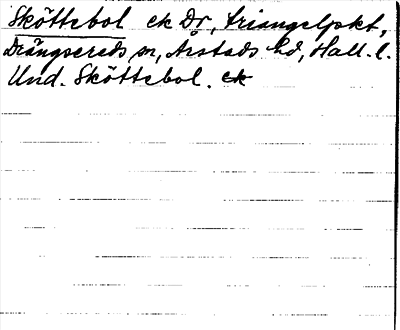 Sköttebol ek Dr, triangelpkt,
Drängsereds sn, Årstads hd, Hall. l.
Und. Sköttebol. ek